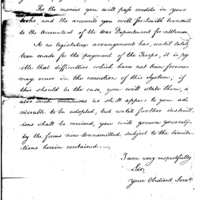 For the monies you will pass credits in your
books, and the accounts you will forthwith transmit
to the Accountant of the War Department for settlement.
As no legislative arrangement has, until lately
been made for the payment of the Troops, it is pos
sible that difficulties which have not been foreseen
may occur in the execution of this system; if
this should be the case, you will state them, &
also such measures as shall appear to you ad
viseable to be adopted, but until further instruct
ions shall be received, you will govern yourself
by the forms now transmitted, subject to the limita
tions herein contained.
I am very respectfully
Sir,
Your Obedient Servt